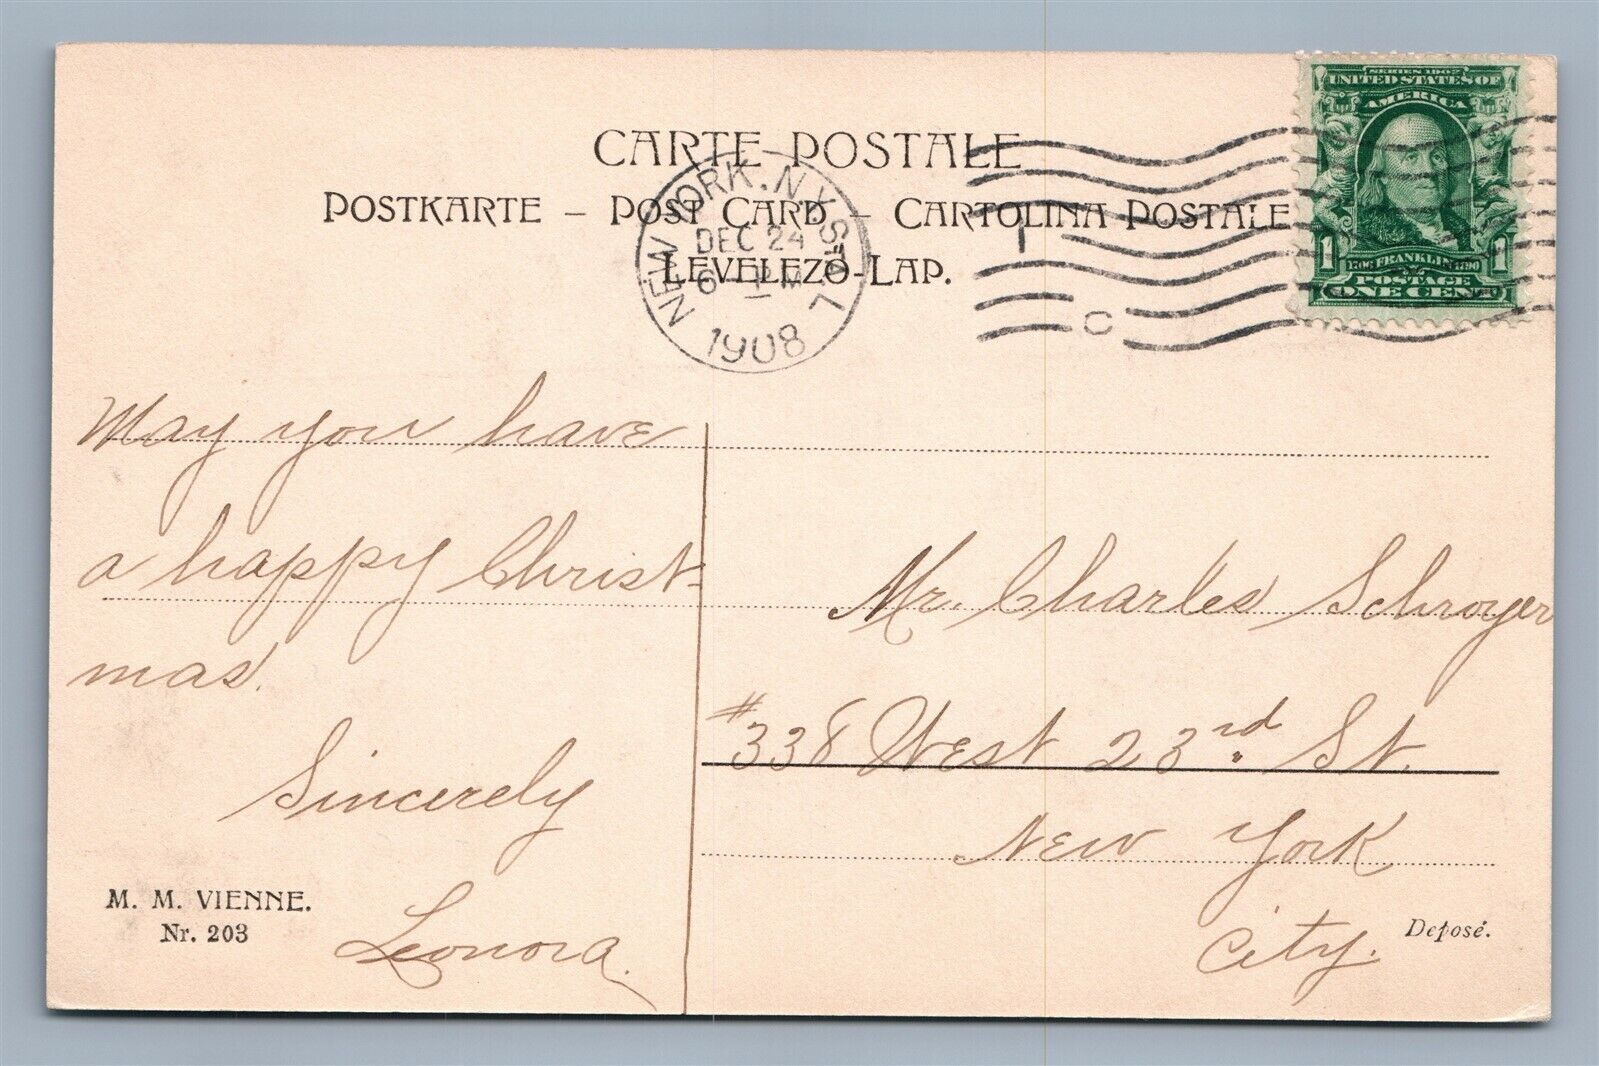 CARTE POSTALE
POSTKARTE – POST CARD – CARTOLINA POSTALE
LEVELEZŐ-LAP.
NEW YORK, N.Y. STA. L
DEC 24
6 PM
1908
SERIES 1902
UNITED STATES OF
AMERICA
1 1
1706 FRANKLIN 1790
POSTAGE
ONE CENT
C
May you have
a happy Christ-
mas.
Sincerely
Leonora.
Mr. Charles Schroyer
#338 West 23rd St.
New York
City.
M. M. VIENNE.
Nr. 203
Deposé.